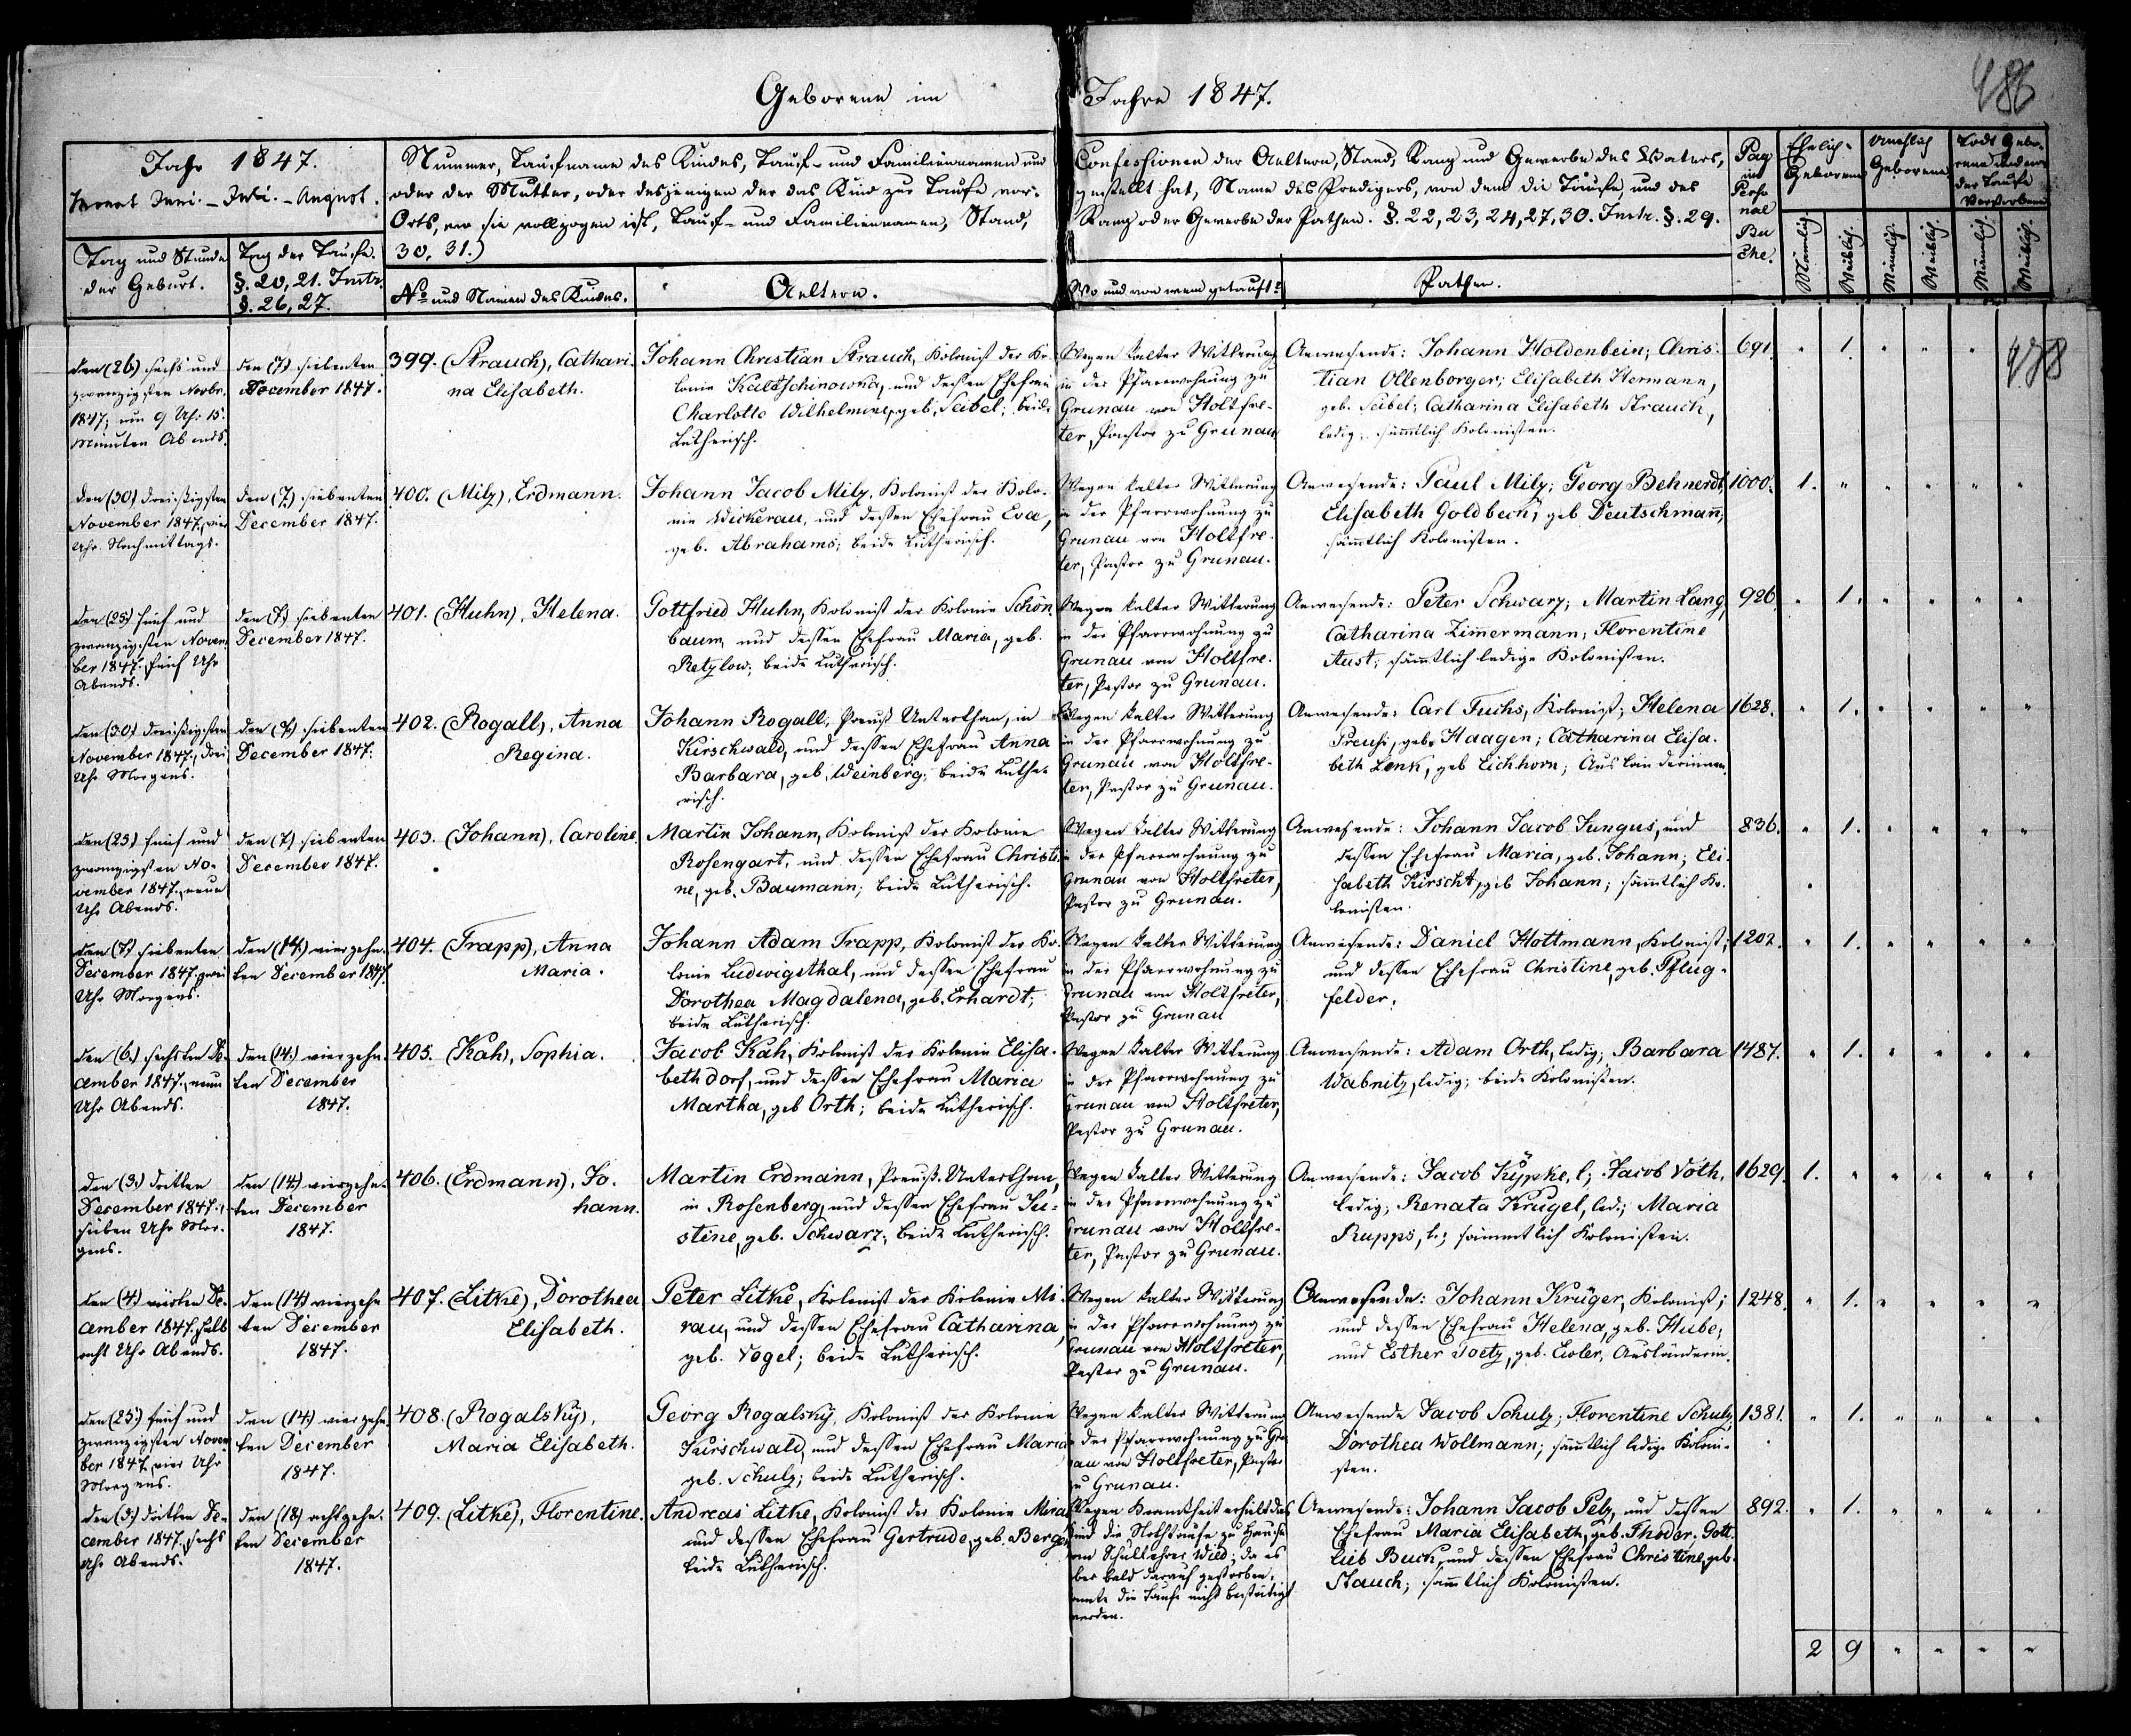 Geborene im Jahre 1847.
486
Jahr 1847.
Monat Juni. - Juli. - August.
Nummer, Taufname des Kindes, Tauf- und Familiennamen und
oder der Mutter, oder desjenigen der das Kind zur Taufe vor-
Orts, wo sie vollzogen ist, Tauf- und Familiennamen, Stand,
30. 31.)
Confessionen der Aeltern, Stand, Rang und Gewerbe des Vaters,
gestellt hat, Name des Predigers, von dem die Taufe, und des
Rang oder Gewerbe der Pathen. §. 22, 23, 24, 27, 30. Instr. §. 29.
Pag
im
Perso
nal
Bu
che.
Ehelich-
Geborene
Unehlich
Geborene
Todt Gebo-
rene und vor
der Taufe
Verstorbene
Tag und Stunde
der Geburt.
Tag der Taufe.
§. 20, 21. Instr.
§. 26, 27.
No und Namen des Kindes.
Aeltern.
Wo und von wem getauft?
Pathen.
Männlich
Weiblich.
Männlich.
Weiblich
Männlich.
Weiblich.
438
den (26) sechs und
zwanzigsten Novbr.
1847; um 9 Uhr 15.
Minuten Abends.
den (7.) siebenten
December 1847.
399. (Strauch), Cathari-
na Elisabeth.
Johann Christian Strauch, Kolonist der Ko-
lonie Kaltschinowka, und dessen Ehefrau
Charlotte Wilhelmine, geb. Seibel; beide
Lutherisch.
Wegen kalter Witterung
in der Pfarrwohnung zu
Grunau von Holtfre-
ter, Pastor zu Grunau
Anwesende: Johann Holdenbein; Chris-
tian Ollenborger; Elisabeth Hermann,
geb. Seibel; Catharina Elisabeth Strauch,
ledig; sämmtlich Kolonisten.
691 " 1. " " "
den (30) dreissigsten
November 1847., vier
Uhr Nachmittags.
den (7.) siebenten
December 1847.
400. (Milz), Erdmann.
Johann Jacob Milz, Kolonist der Kolo-
nie Wickerau, und dessen Ehefrau Eva,
geb. Abrahams; beide Lutherisch.
Wegen kalter Witterung
in der Pfarrwohnung zu
Grunau von Holtfre-
ter, Pastor zu Grunau.
Anwesende: Paul Milz; Georg Behnerdt,
Elisabeth Goldbeck, geb Deutschmañ,
sämmtlich Kolonisten.
1000. 1. " " " " "
den (25) fünf und
zwanzigsten Novem-
ber 1847. fünf Uhr
Abends.
den (7.) siebenten
December 1847.
401. (Huhn), Helena.
Gottfried Huhn, Kolonist der Kolonie Schön-
baum, und dessen Ehefrau Maria, geb.
Retzlow; beide Lutherisch.
Wegen kalter Witterung
in der Pfarrwohnung zu
Grunau von Holtfre-
ter, Pastor zu Grunau.
Anwesende: Peter Schwarz; Martin Lang,
Catharina Zimmermann; Florentine
Aust; sämmtlich ledige Kolonisten.
926 " 1. " " " "
den (30) dreissigsten
November 1847., drei
Uhr Morgens.
den (7.) siebenten
December 1847.
402. (Rogall), Anna
Regina.
Johann Rogall, Preuß Unterthan, in
Kirschwald, und dessen Ehefrau Anna
Barbara, geb. Weinberg; beide Luthe-
risch.
Wegen kalter Witterung
in der Pfarrwohnung zu
Grunau von Holtfre-
ter, Pastor zu Grunau.
Anwesende: Carl Fuchs, Kolonist; Helena
Preuss, geb. Haagen; Catharina Elisa-
beth Lenk, geb Eichhorn; Ausländerinnen.
1628. " 1. " " " "
den (25) fünf und
zwanzigsten No-
vember 1847., neun
Uhr Abends.
den (7.) siebenten
December 1847.
403. (Johann), Caroline.
Martin Johann, Kolonist der Kolonie
Rosengart, und dessen Ehefrau Christi-
ne, geb. Baumann; beide Lutherisch.
Wegen kalter Witterung
in der Pfarrwohnung zu
Grunau von Holtfreter,
Pastor zu Grunau.
Anwesende: Johann Jacob Jungus, und
dessen Ehefrau Maria, geb. Johann; Eli-
sabeth Kirscht, geb Johann; sämmtlich Ko-
lonisten.
836. " 1. " " " "
den (7.) siebenten
December 1847. zwei
Uhr Morgens.
den (14.) vierzehn-
ten December 1847.
404. (Trapp), Anna
Maria.
Johann Adam Trapp, Kolonist der Ko-
lonie Ludwigsthal, und dessen Ehefrau
Dorothea Magdalena, geb. Erhardt;
beide Lutherisch.
Wegen kalter Witterung
in der Pfarrwohnung zu
Grunau von Holtfreter,
Pastor zu Grunau
Anwesende: Daniel Hottmann, Kolonist;
und dessen Ehefrau Christine, geb. Pflug-
felder.
1202. " 1. " " " "
den (6.) sechsten De-
cember 1847., neun
Uhr Abends.
den (14.) vierzehn-
ten December
1847.
405. (Kah), Sophia.
Jacob Kah, Kolonist der Kolonie Elisa-
bethdorf, und dessen Ehefrau Maria
Martha, geb Orth; beide Lutherisch.
Wegen kalter Witterung
in der Pfarrwohnung zu
Grunau von Holtfreter,
Pastor zu Grunau.
Anwesende: Adam Orth, ledig; Barbara
Wabnitz, ledig; beide Kolonisten.
1487. " 1. " " " "
den (3.) dritten
December 1847.,
sieben Uhr Mor-
gens.
den (14.) vierzehn-
ten December
1847.
406. (Erdmann), Jo-
hann.
Martin Erdmann, Preuß. Unterthan,
in Rosenberg, und dessen Ehefrau Ju-
stine, geb. Schwarz; beide Lutherisch.
Wegen kalter Witterung
in der Pfarrwohnung zu
Grunau von Holtfre-
ter, Pastor zu Grunau.
Anwesende: Jacob Küpke, l; Jacob Voth,
ledig; Renata Krügel, led.; Maria
Rupps, l.; sämmtlich Kolonisten.
1629. 1. " " " " "
den (4) vierten De-
cember 1847. halb
acht Uhr Abends.
den (14) vierzehn
ten December
1847.
407. (Litke), Dorothea
Elisabeth.
Peter Litke, Kolonist der Kolonie Mi-
rau, und dessen Ehefrau Catharina,
geb. Vogel; beide Lutherisch.
Wegen kalter Witterung
in der Pfarrwohnung zu
Grunau von Holtfreter,
Pastor zu Grunau.
Anwesende: Johann Krüger, Kolonist;
und dessen Ehefrau Helena, geb. Hube;
und Esther Goetz, geb. Ewler, Ausländerin.
1248. " 1. " " " "
den (25) fünf und
zwanzigsten Novem
ber 1847, vier Uhr
Morgens.
den (14.) vierzehn
ten December
1847.
408. (Rogalsky),
Maria Elisabeth.
Georg Rogalsky, Kolonist der Kolonie
Kirschwald, und dessen Ehefrau Maria
geb. Schulz; beide Lutherisch.
Wegen kalter Witterung
in der Pfarrwohnung zu Gru
nau von Holtfreter, Pastor
zu Grunau.
Anwesende Jacob Schulz; Florentine Schulz
Dorothea Wollmann; sämmtlich ledige Koloni-
sten.
1381. " 1. " " " "
den (3.) dritten De-
cember 1847., sechs
Uhr Abends.
den (18) achtzehn-
ten December
1847.
409. (Litke), Florentine.
Andreas Litke, Kolonist der Kolonie Mirau
und dessen Ehefrau Gertrude, geb. Berger
beide Lutherisch.
Wegen Krankheit erhielt das
Kind die Nothtaufe zu Hause
vom Schullehrer Wild; da es
aber bald darauf gestorben,
konnte die Taufe nicht bestätigt
werden.
Anwesende: Johann Jacob Pelz, und dessen
Ehefrau Maria Elisabeth, geb. Thoder. Gott-
lieb Buck, und dessen Ehefrau Christine, geb.
Stauch; sämmtlich Kolonisten.
892. " 1. " " " "
2 9 " " " "